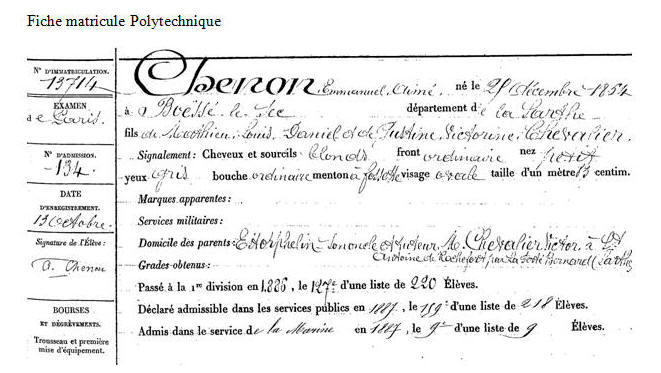 Fiche matricule Polytechnique
N° D'IMMATRICULATION.
13714
EXAMEN
de Paris.
N° D'ADMISSION.
134
DATE
D'ENREGISTREMENT.
13 Octobre.
Signature de l'Élève :
A. Chenon
BOURSES
ET DÉGRÈVEMENTS.
Trousseau et première
mise d'équipement.
Chenon, Emmanuel Aimé né le Décembre
à Boëssé le Sec département de la Sarthe
fils de Mathieu Louis Daniel et de Justine Victorine Chevalier.
Signalement : Cheveux et sourcils blonds front ordinaire nez petit
yeux gris bouche ordinaire menton à fossette visage ovale taille d'un mètre centim.
Marques apparentes :
Services militaires :
Domicile des parents : Est orphelin - son oncle et tuteur, M. Chevalier Victor à St
Antoine de Rochefort, par La Ferté Bernard (Sarthe)
Grades obtenus :
Passé à la 1re division en 1886, le 127e d'une liste de 220 Élèves.
Déclaré admissible dans les services publics en 1887, le 159e d'une liste de 218 Élèves.
Admis dans le service de la Marine en 1887, le 9e d'une liste de 9 Élèves.